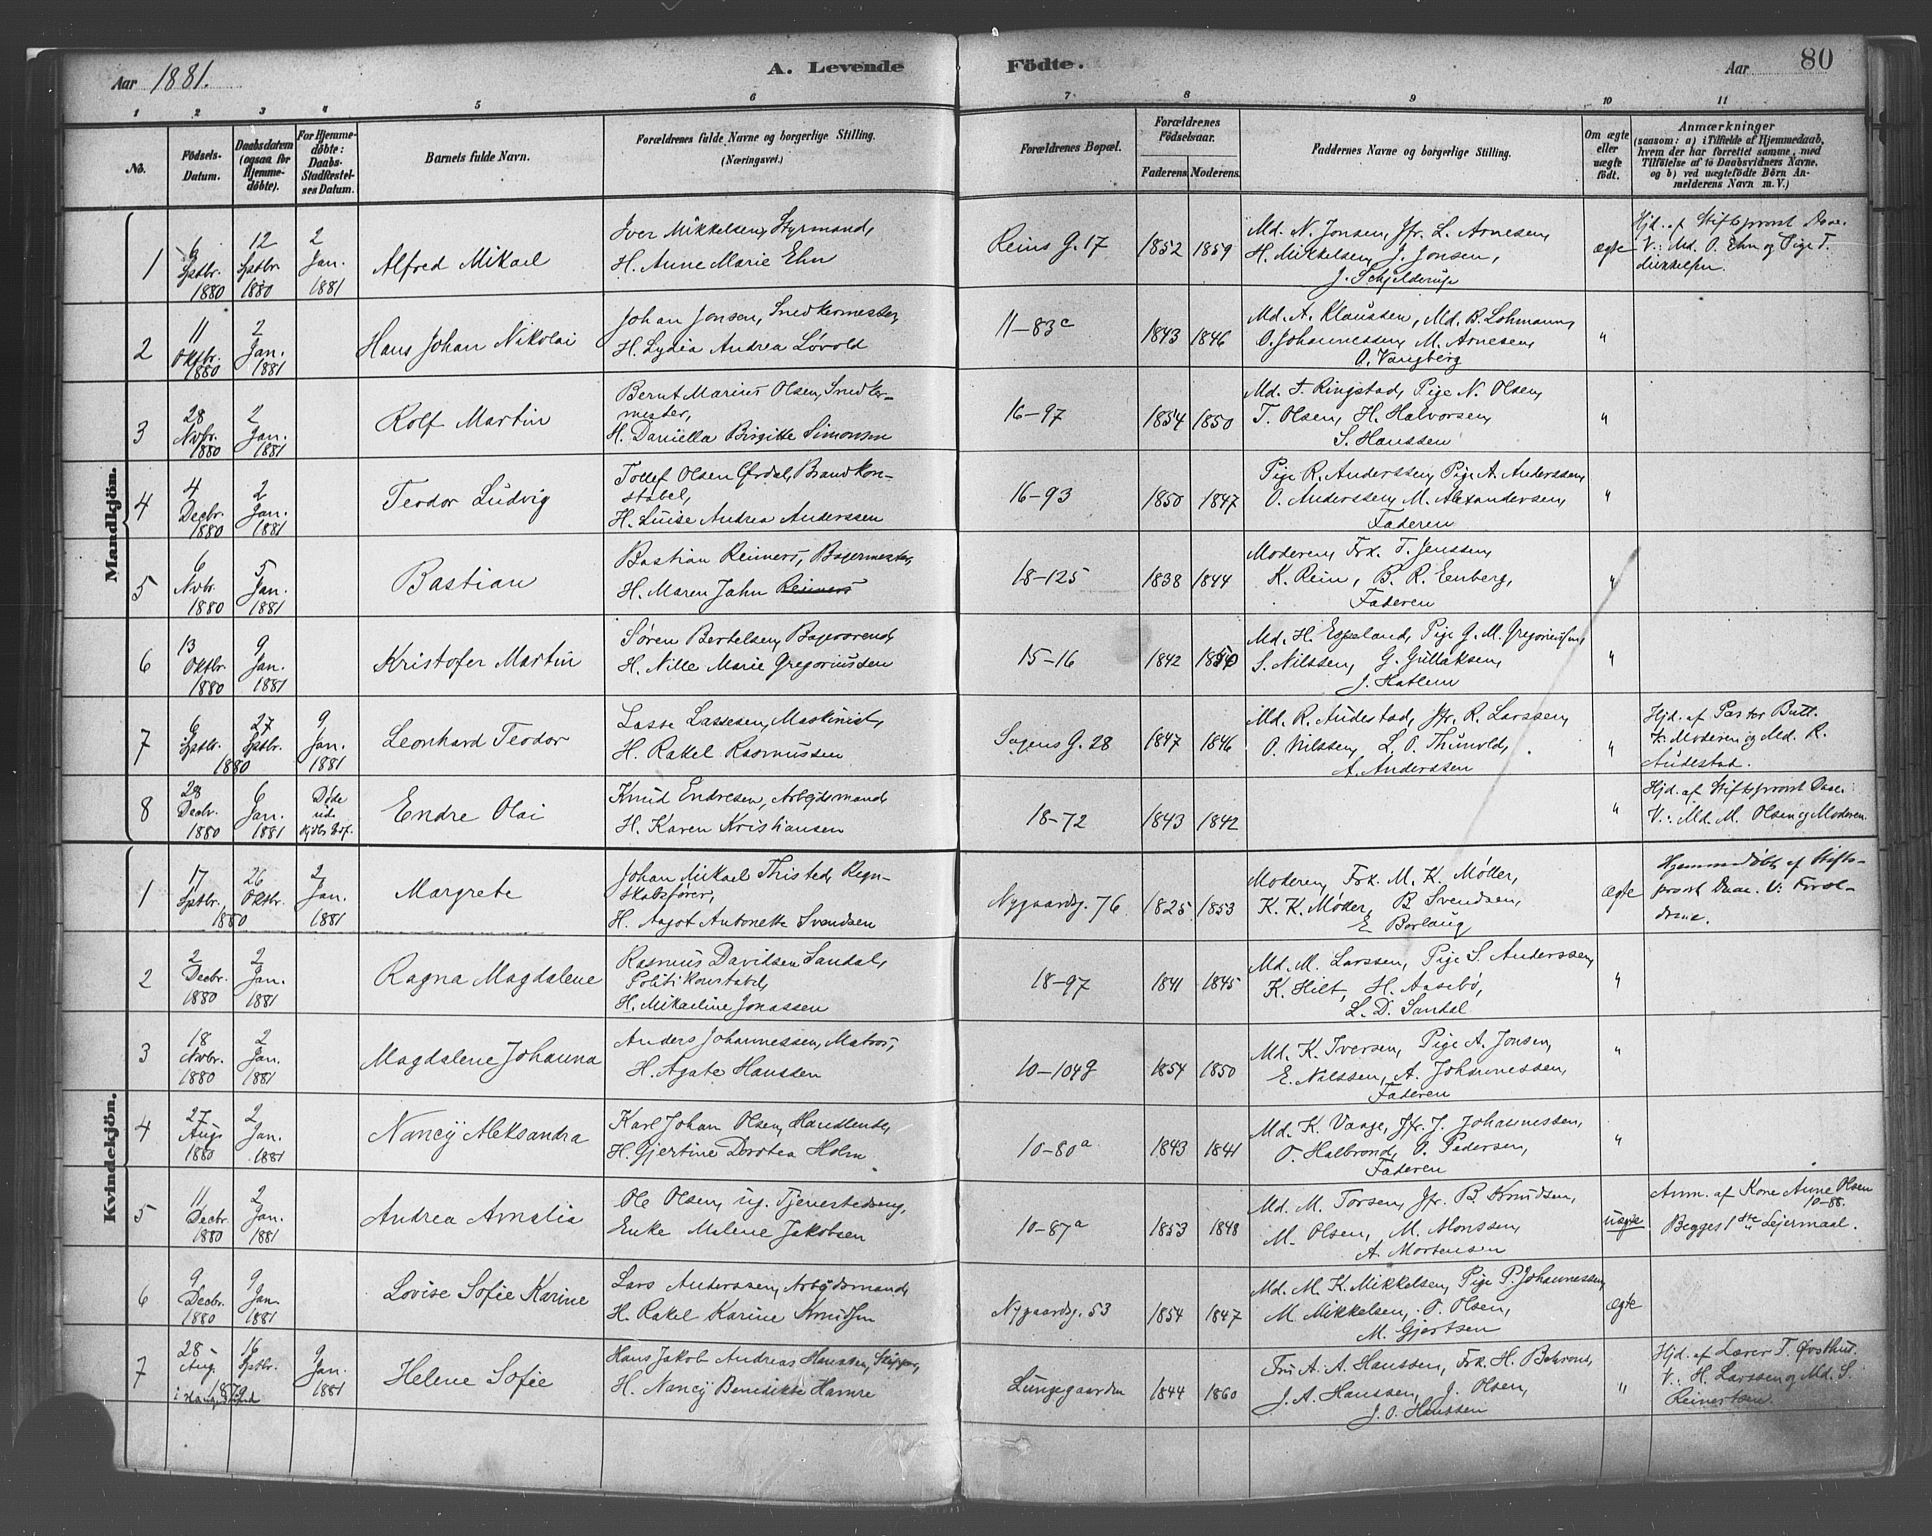 Aar 1881.
A. Levende Födte.
Aar
80
1 2 3 4 5 6 7 8 9 10 11
No.
Födsels-Datum.
Daabsdatum (ogsaa for Hjemmedöbte).
For Hjemmedöbte: Daabs-Stadfæstelses Datum.
Barnets fulde Navn.
Forældrenes fulde Navne og borgerlige Stilling. (Næringsvei.)
Forældrenes Bopæl.
Forældrenes Födselsaar.
Faderens. Moderens.
Faddernes Navne og borgerlige Stilling.
Om ægte eller uægte födt.
Anmærkninger
(saasom: a) i Tilfælde af Hjemmedaab, hvem der har forrettet samme, med Tilföielse af to Daabsvidners Navne, og b) ved uægtefödte Börn Anmelderens Navn m. V.)
Mandkjön.
1 6 Sptbr. 1880 12 Sptbr. 1880 2 Jan. 1881 Alfred Mikael
Iver Mikkelsen, Styrmand,
H. Anne Marie Ehn
Reins G. 17 1852 1859
Md. N. Jonsen, Jfr. L. Arnesen,
H. Mikkelsen, J. Jonsen,
J. Schjelderup
ægte
Hjd. af Stiftsprovst Daae.
V: Md. O. Ehn og Pige T.
2 11 Oktbr. 1880 2 Jan. 1881 Hans Johan Nikolai
Johan Jonsen, Snedkermester,
H. Lydia Andrea Løvold
11-83c 1843 1846
Md. A. Klaussen, Md. B. Lohmann,
O. Johannessen, M. Arnesen,
O. Vangberg
"
3 28 Nvbr. 1880 2 Jan. 1881 Rolf Martin
Bernt Marius Olsen, Snedker-
mester,
H. Daniella Birgitte Simonsen
16-97 1854 1850
Md. F. Ringstad, Pige N. Olsen,
T. Olsen, H. Halvorsen,
S. Hanssen
"
4 4 Decbr. 1880 2 Jan. 1881 Teodor Ludvig
Tollef Olsen Ørdal, Brandkon-
stabel,
H. Luise Andrea Anderssen
16-93 1850 1847
Pige R. Anderssen, Pige A. Anderssen,
O. Anderssen, M. Alexandersen,
Faderen
"
5 6 Nvbr. 1880 5 Jan. 1881 Bastian
Bastian Reimers, Bagermester,
H. Maren Jahn Reimers
18-125 1838 1844
Moderen, Frk. T. Jenssen,
K. Rein, B. R. Eenberg,
Faderen
"
6 13 Oktbr. 1880 9 Jan. 1881 Kristofer Martin
Søren Bertelsen, Bagersvend,
H. Nille Marie Gregoriussen
15-16 1842 1850
Md. H. Espeland, Pige G. M. Gregoriussen,
S. Nilssen, G. Gullaksen,
J. Hatlem
"
7 6 Sptbr. 1880 27 Sptbr. 9 Jan. 1881 Leonhard Teodor
Lasse Lassesen, Maskinist,
H. Rakel Rasmussen
Sagens G. 28 1847 1846
Md. R. Audestad, Jfr. R. Larssen,
O. Nilssen, L. O. Thunold,
A. Anderssen
"
Hjd. af Pastor Bull.
V: Moderen og Md. R.
Audestad.
8 28 Decbr. 1880 6 Jan. 1881 Døde
Endre Olai
Knud Endresen, Arbejdsmand
H. Karen Kristiansen
18-72 1843 1842
"
Hjd. af Stiftsprovst Daae:
V.: Md. M. Olsen og Moderen.
Kvindekjön.
1 17 Sptbr. 1880 26 Oktbr. 2 Jan. 1881 Margrete
Johan Mikael Thisted, Regn-
skabsfører,
H. Aagot Antonette Svendsen
Nygaardsg. 76 1825 1853
Moderen, Frk. M. K. Møller,
K. K. Møller, B Svendsen,
E Borlaug
ægte
Hjemmedøbt af Stifts-
provst Daae. V: Foræl-
drene.
2 2 Decbr. 1880 2 Jan. 1881 Ragna Magdalene
Rasmus Davidsen Sandal,
Politikonstabel,
H. Mikaeline Jonassen
18-97 1841 1845
Md. M. Larssen, Pige S. Anderssen,
K. Hilt, H. Aasebø,
L. D. Sandal
"
3 18 Novbr. 1880 2 Jan. 1881 Magdalene Johanna
Anders Johannessen, Matros,
H. Agate Hanssen
10-104g 1854 1850
Md. K. Iversen, Pige A. Jonsen,
E. Nilssen, A. Johannessen,
Faderen
"
4 27 Augs 1880 2 Jan. 1881 Nancy Aleksandra
Karl Johan Olsen, Handlende,
H. Gjertine Dorotea Holm
10-80a 1843 1841
Md. K. Vaage, Jfr. J. Johannessen,
O. Halbrond, O. Pedersen,
Faderen
"
5 11 Decbr. 1880 2 Jan. 1881 Andrea Amalia
Ole Olsen, ug. Tjenestedreng,
Enke Melene Jakobsen
10-87a 1853 1848
Md. M. Torsen, Jfr. B. Knudsen,
M. Olsen, M. Monssen,
A. Mortensen
uægte
Anm. af Kone Anne Olsen
10-88.
Begges 1ste Lejermaal.
6 9 Decbr. 1880 9 Jan. 1881 Lovise Sofie Karine
Lars Anderssen, Arbejdsmand,
H. Rakel Karine Knudsen
Nygaardsg. 53 1854 1847
Md. M. K. Mikkelsen, Pige P. Johannessen,
M Mikkelsen, O. Olsen,
M. Gjertsen
ægte
7 28 Aug. 1879 16 Sptbr. 9 Jan. 1881 Helene Sofie
Hans Jakob Andreas Hanssen, Skipper,
H. Nancy Benedikte Hamre
Lungegaarden 1844 1860
Fru A. A. Hanssen, Frk. H. Behrond,
J. A. Hanssen, J. Olsen,
J. O. Hanssen
"
Hjd. af Lærer T. Østhus.
V: H. Larssen og Md. S.
Reinertsen.